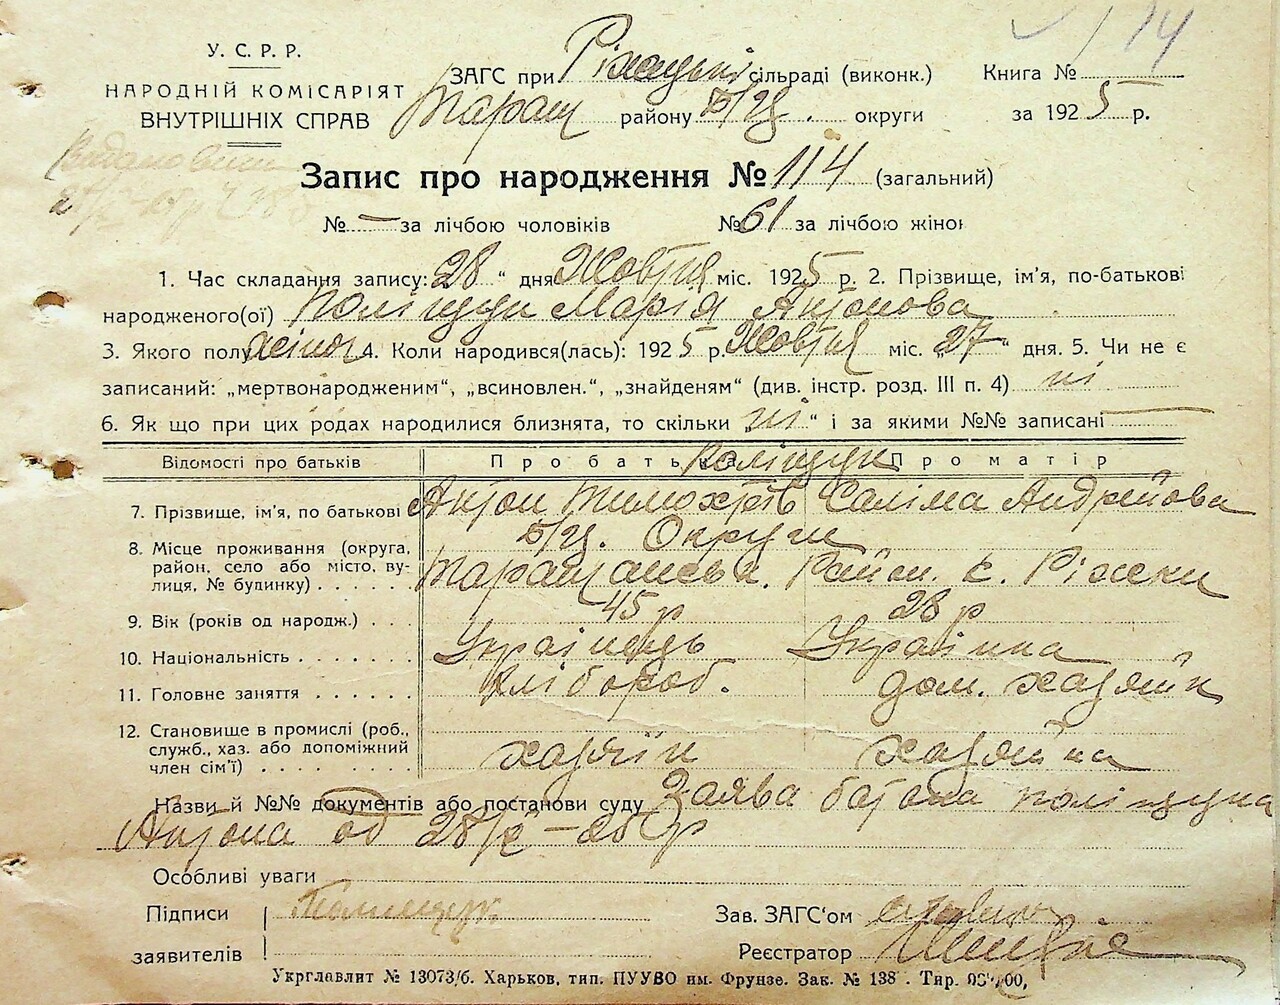 114
У. С. Р. Р.
НАРОДНІЙ КОМІСАРІЯТ
ВНУТРІШНІХ СПРАВ
ЗАГС при Ріжецькі сільраді (виконк.)
Таращ району Б/Ц. округи
Книга №
за 1925 р.
Запис про народження № 114 (загальний)
№ — за лічбою чоловіків № 61 за лічбою жінок
1. Час складання запису: 28 " дня Жовтня міс. 1925 р. 2. Прізвище, ім'я, по-батькові
народженого(ої) Поліщук Марія Антонова
3. Якого полу жіноч 4. Коли народився(лась): 1925 р. Жовтня міс. „27" дня. 5. Чи не є
записаний: „мертвонародженим", „всиновлен.", „знайденям" (див. інстр. розд. III п. 4) ні
6. Як що при цих родах народилися близнята, то скільки „ні" і за якими №№ записані —
Відомості про батьків Про батька Поліщук Про матір
7. Прізвище, ім'я, по батькові Антон Тимохтеїв Саліма Андрійова
Б/Ц. Округи
8. Місце проживання (округа, район, село або місто, вулиця, № будинку) Таращанськ. Район. с. Ріжки
9. Вік (років од народж.) 45 р 28 р
10. Національність Українець Українка
11. Головне заняття хлібороб. дом. хазяйк
12. Становище в промислі (роб., служб., хаз. або допоміжний член сім'ї) хазяїн хазяйка
Назви й №№ документів або постанови суду Заява батька Поліщука
Антона од 28/X – 25 р
Особливі уваги
Підписи Полищук Зав. ЗАГС'ом
заявителів Реєстратор
Укрглавлит № 13073/б. Харьков, тип. ПУУВО им. Фрунзе. Зак. № 138. Тир.